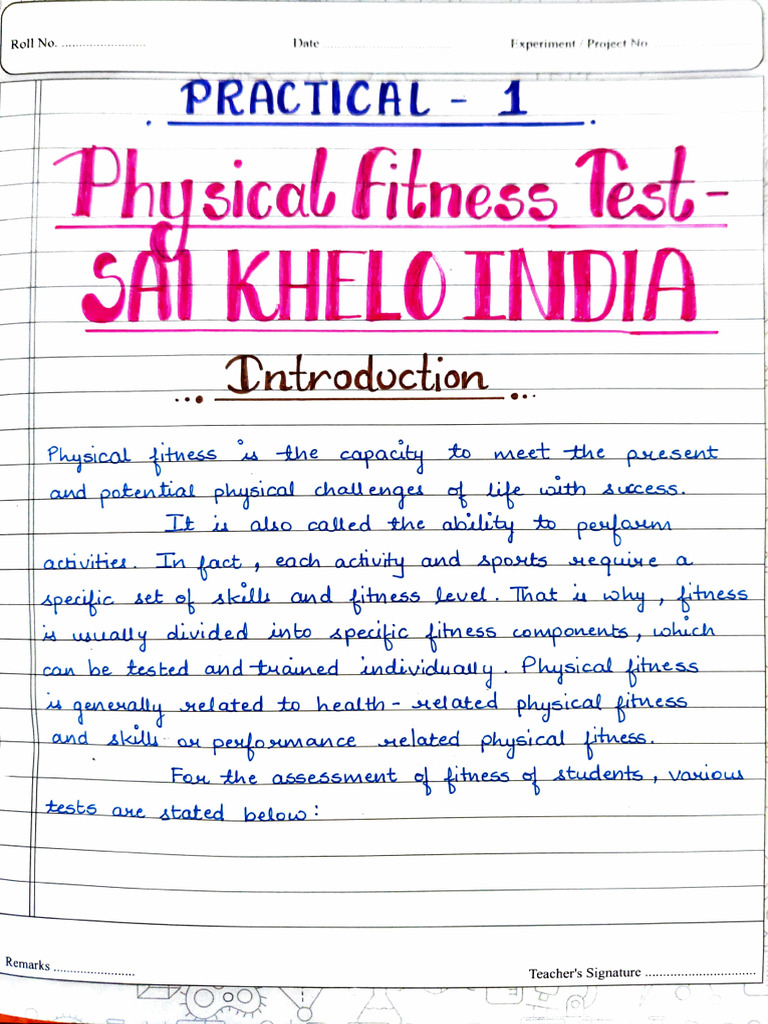 Roll No. ........................ Date ........................ Experiment / Project No. ........................
PRACTICAL - 1
Physical Fitness Test -
SAI KHELO INDIA
Introduction
Physical fitness is the capacity to meet the present
and potential physical challenges of life with success.
It is also called the ability to perform
activities. In fact, each activity and sports require a
specific set of skills and fitness level. That is why, fitness
is usually divided into specific fitness components, which
can be tested and trained individually. Physical fitness
is generally related to health-related physical fitness
and skills or performance related physical fitness.
For the assessment of fitness of students, various
tests are stated below:
Remarks ........................ Teacher's Signature ................................